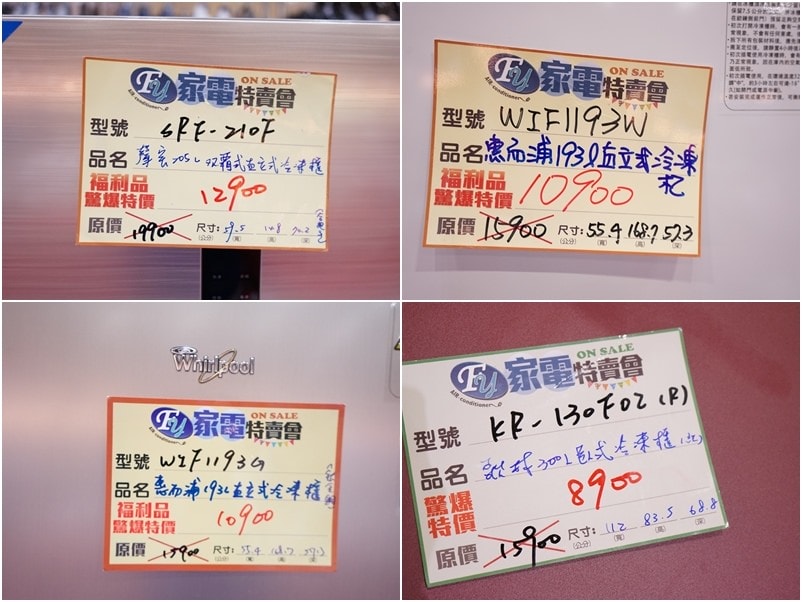 FU 家電特賣會 ON SALE
Air conditioner
型號 SRF-210F
品名 聲寶205L双門直立式冷凍櫃
福利品
驚爆特價 12900
原價 19900 尺寸: 59.5 148
(公分) (寬) (高) (深)
FU 家電特賣會 ON SALE
Air conditioner
型號 WIF1193W
品名 惠而浦193l直立式冷凍
福利品
驚爆特價 10900
原價 15900 尺寸: 55.4 168.7 57.3
(公分) (寬) (高) (深)
Whirlpool
FU 家電特賣會 ON SALE
Air conditioner
型號 WIF1193G
品名 惠而浦193L直立式冷凍櫃
福利品
驚爆特價 10900
原價 15900 尺寸: 55.4 168.7 57.3
(公分) (寬) (高) (深)
FU 家電特賣會 ON SALE
Air conditioner
型號 KR-130F02(R)
品名 300L臥式冷凍櫃(紅)
驚爆
特價 8900
原價 15900 尺寸: 112 83.5 68.8
(公分) (寬) (高) (深)